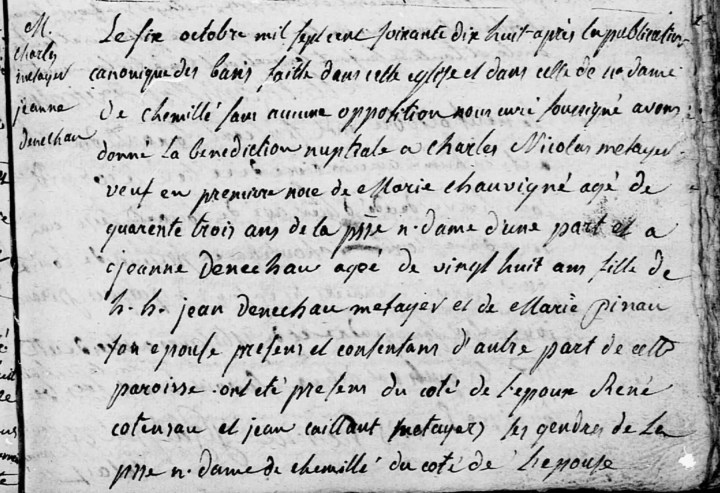 M.
charles
metayer
jeanne
denechau
Le six octobre mil sept cent soixante dix huit après la publication
canonique des bans faitte dans cette eglise et dans celle de n. dame
de chemillé sans aucune opposition nous curé soussigné avons
donné la benediction nuptiale a charles Nicolas metayer
veuf en premiere noce de Marie chauvigné agé de
quarente trois ans de la psse n. dame d'une part et a
jeanne denechau agée de vingt huit ans fille de
h. h. jean denechau metayer et de Marie pinau
son epouse presens et consentans d'autre part de cette
paroisse. ont été presens du coté de l'epoux René
cotensau et jean caillaut metayers ses gendres de la
psse n. dame de chemillé du coté de l'epouse